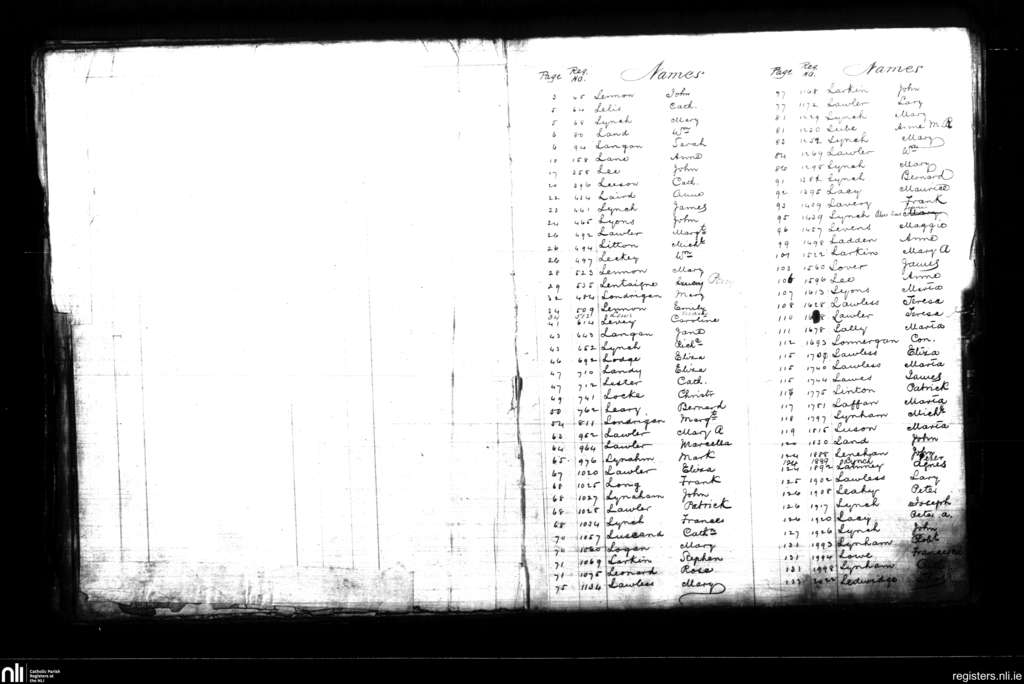 Page Reg. No. Names
3 45 Lennon John
5 64 Lelis Cath.
5 68 Lynch Mary
6 80 Land Wm
6 94 Langan Sarah
10 158 Lane Anne
17 258 Lee John
20 396 Leeson Cath.
22 434 Laird Anne
23 441 Lynch James
24 465 Lyons John
26 492 Lawler Margt
26 494 Litton Michl
26 497 Leckey Wm
28 523 Lennon Mary
29 535 Lentaigne
32 484 Londrigan Mary
34 509 Lennon Emily
41 614 Levey Caroline
43 643 Langan Jane
43 652 Lynch Richd
46 692 Lodge Eliza
47 710 Landy Eliza
47 712 Lester Cath.
49 741 Locke Christr
50 762 Leary Bernard
54 811 Londrigan Margt
63 952 Lawler Mary A
64 964 Lawler Marcella
65 976 Lynahm Mark
67 1020 Lawler Eliza
68 1025 Long Frank
68 1027 Lynsham John
68 1028 Lawler Patrick
68 1034 Lynch Frances
70 1057 Luscand Cathe
70 1060 Logan Mary
71 1069 Larkin Stephen
71 1075 Leonard Rosa
75 1134 Lawless Mary
Page Reg. No. Names
77 1168 Larkin John
77 1172 Lawler Lary
81 1229 Lynch Mary
81 1230 Lube Anne M.
83 1252 Lynch Mary
84 1269 Lawler Wm
86 1295 Lynch Mary
91 1384 Lynch Bernard
92 1395 Lacy Maurice
93 1409 Lavery Frank
95 1439 Lynch
96 1457 Levens Maggie
99 1498 Ladden Anne
101 1522 Larkin Mary A
103 1560 Lover James
106 1596 Lee Anne
107 1613 Lyons Maria
108 1625 Lawless Teresa
110 Lawler Teresa
111 1678 Lally Maria
112 1693 Lonnergan Con.
115 Lawless Eliza
115 1740 Lawless Maria
115 1744 Lawes James
116 1775 Linton Patrick
117 1781 Laffan Maria
118 1797 Lynham Michl
119 1815 Luson Maria
120 1830 Land John
124 1888 Lenehan John
124 1889 Lynch Peter
124 1892 Latimey Agnes
125 1902 Lawless Lary
126 1908 Leahy Peter
126 1917 Lynch Joseph
126 1920 Lacy Peter A.
127 1926 Lynch John
131 1993 Lynham Robt
131 1994 Lowe
131 1998 Lynham
133 2022 Ledwidge
nli
Catholic Parish
Registers at
the NLI
registers.nli.ie